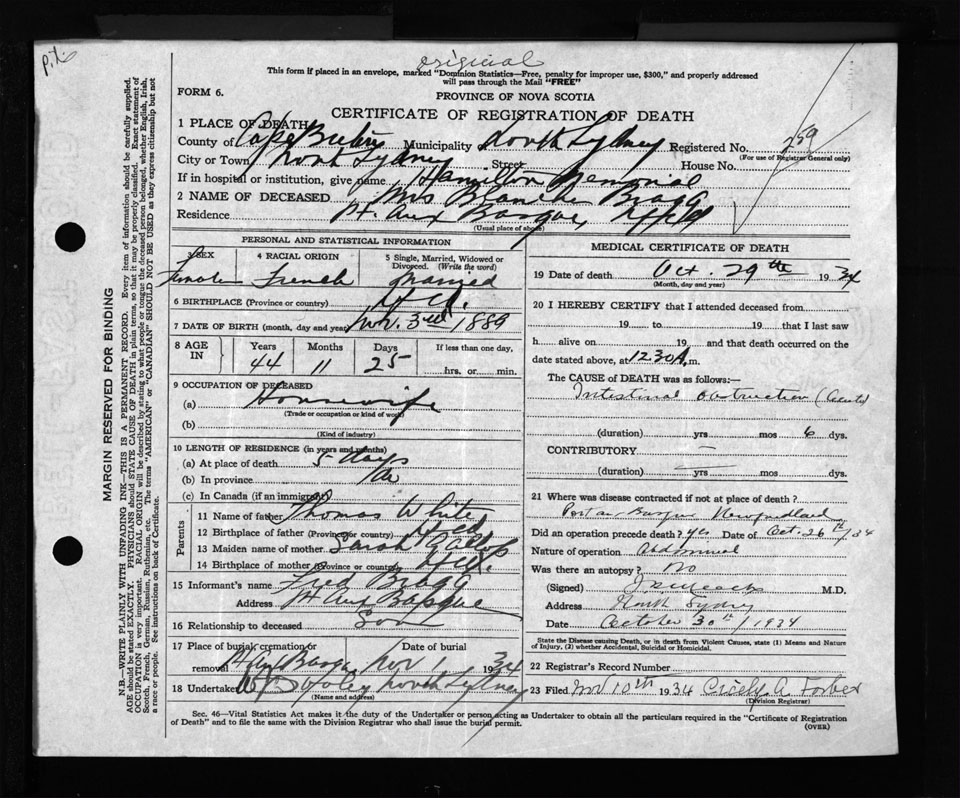 original
This form if placed in an envelope, marked "Dominion Statistics—Free, penalty for improper use, $300," and properly addressed
will pass through the Mail "FREE"
FORM 6.
PROVINCE OF NOVA SCOTIA
CERTIFICATE OF REGISTRATION OF DEATH
1 PLACE OF DEATH
County of Cape Breton Municipality North Sydney Registered No. 259
(For use of Registrar General only)
City or Town North Sydney Street House No.
If in hospital or institution, give name Hamilton Memorial
2 NAME OF DECEASED Mrs Blanche Bragg
Residence Pt. Aux Basque Nfld
(Usual place of abode)
PERSONAL AND STATISTICAL INFORMATION
3 SEX 4 RACIAL ORIGIN 5 Single, Married, Widowed or Divorced. (Write the word)
Female French Married
6 BIRTHPLACE (Province or country) Nfld.
7 DATE OF BIRTH (month, day and year) Nov. 3rd 1889
8 AGE IN Years Months Days If less than one day,
44 11 25 hrs. or min.
9 OCCUPATION OF DECEASED
(a) Housewife
(Trade or occupation or kind of work)
(b)
(Kind of industry)
10 LENGTH OF RESIDENCE (in years and months)
(a) At place of death 5 days
(b) In province
(c) In Canada (if an immigrant)
Parents
11 Name of father Thomas White
12 Birthplace of father (Province or country) Nfld
13 Maiden name of mother Sarah
14 Birthplace of mother (Province or country) Nfld.
15 Informant's name Fred Bragg
Address Pt Aux Basque
16 Relationship to deceased Son
17 Place of burial, cremation or removal Date of burial
Pt Aux Basque Nov 1 1934
18 Undertaker North Sydney
(Name and address)
MEDICAL CERTIFICATE OF DEATH
19 Date of death Oct. 29th 1934
(Month, day and year)
20 I HEREBY CERTIFY that I attended deceased from
19 to 19 that I last saw
h alive on 19 and that death occurred on the
date stated above, at 12.30 A.m.
The CAUSE of DEATH was as follows:—
Intestinal obstruction (acute)
(duration) yrs mos 6 dys.
CONTRIBUTORY —
(duration) — yrs mos dys.
21 Where was disease contracted if not at place of death?
Port au Basque Newfoundland
Did an operation precede death? yes Date of Oct. 26th/34
Nature of operation Abdominal
Was there an autopsy? No
(Signed) M.D.
Address North Sydney
Date October 30th/1934
State the Disease causing Death, or in death from Violent Causes, state (1) Means and Nature
of Injury, (2) whether Accidental, Suicidal or Homicidal.
22 Registrar's Record Number
23 Filed Nov 10th 1934 Cicely A. Forbes
(Division Registrar)
Sec. 46—Vital Statistics Act makes it the duty of the Undertaker or person acting as Undertaker to obtain all the particulars required in the "Certificate of Registration
of Death" and to file the same with the Division Registrar who shall issue the burial permit.
(OVER)
MARGIN RESERVED FOR BINDING
N.B.—WRITE PLAINLY WITH UNFADING INK—THIS IS A PERMANENT RECORD. Every item of information should be carefully supplied.
AGE should be stated EXACTLY. PHYSICIANS should STATE CAUSE OF DEATH in plain terms, so that it may be properly classified. Exact statement of
OCCUPATION is very important. RACIAL ORIGIN will be described by stating to what people or tongue the deceased person belonged, whether English, Irish,
Scotch, French, German, Russian, Ruthenian, etc. The terms "AMERICAN" or "CANADIAN" SHOULD NOT BE USED as they express citizenship but not
a race or people. See instructions on back of Certificate.